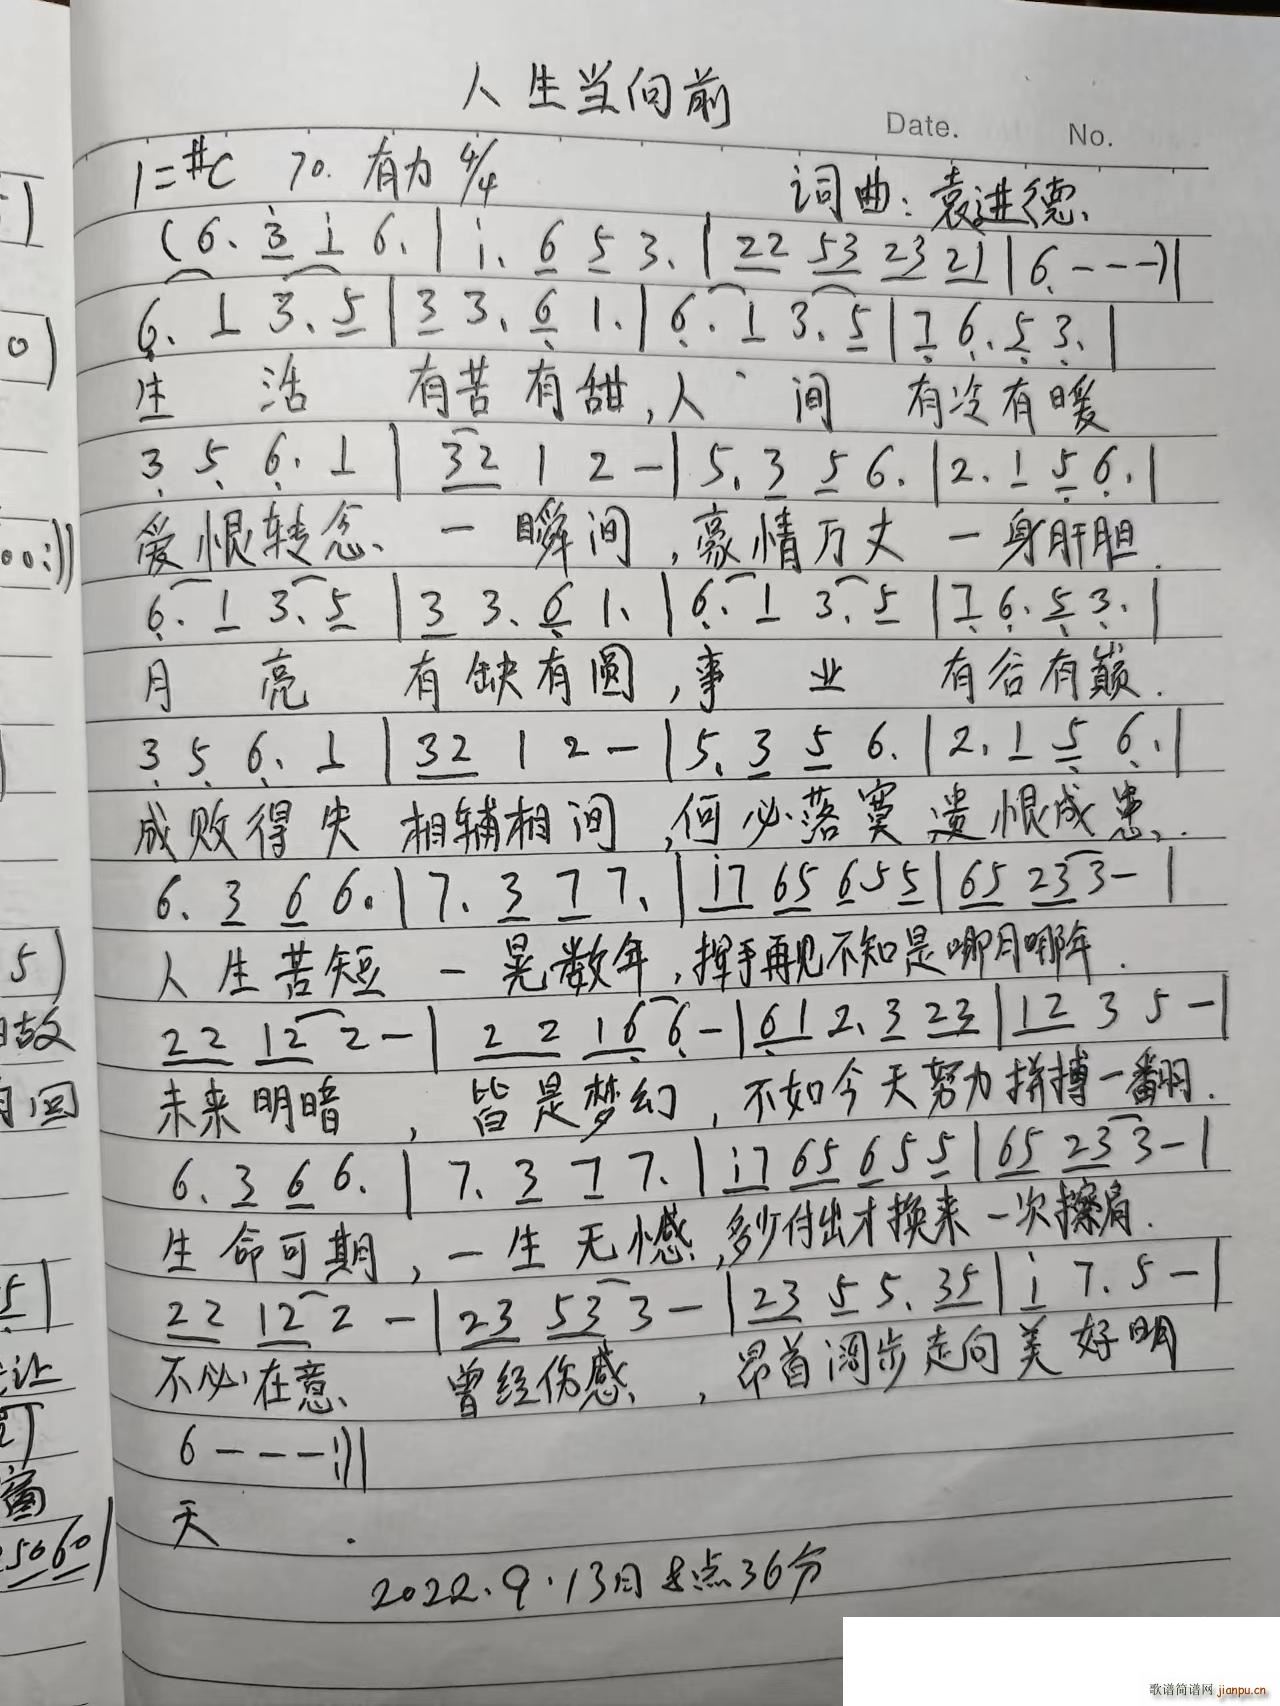 人生当向前
Date.
No.
1=#C 70. 有力 4/4
词曲:袁进德.
(6. 3 i 6. | i. 6 5 3. | 22 53 23 21 | 6 - - -) |
6. 1 3. 5 | 3 3. 6 1. | 6. 1 3. 5 | 7 6. 5 3. |
生 活 有苦有甜,人 间 有冷有暖
3 5 6. 1 | 32 1 2 - | 5. 3 5 6. | 2. 1 5 6. |
爱恨转念、一 瞬间,豪情万丈 一身肝胆.
6. 1 3. 5 | 3 3. 6 1. | 6. 1 3. 5 | 7 6. 5 3. |
月 亮 有缺有圆,事 业 有谷有巅.
3 5 6. 1 | 32 1 2 - | 5. 3 5 6. | 2. 1 5 6. |
成败得失 相辅相间,何必落寞 遗恨成患.
6. 3 6 6. | 7. 3 7 7. | i7 65 655 | 65 23 3 - |
人生苦短 一晃数年,挥手再见不知是哪月哪年.
22 12 2 - | 2 2 16 6 - | 61 2. 3 23 | 12 3 5 - |
未来明暗,皆是梦幻,不如今天努力拼搏一翻.
6. 3 6 6. | 7. 3 7 7. | i7 65 655 | 65 23 3 - |
生命可期,一生无憾,多少付出才换来一次擦肩.
22 12 2 - | 23 53 3 - | 23 5 5. 35 | i 7. 5 - |
不必在意、曾经伤感、,昂首阔步走向美好明
6 - - - :)||
天 .
2022.9.13日8点36分
5)
0)
00:))
5)
故
间
5|
让
窗
25060|
歌谱简谱网 jianpu.cn